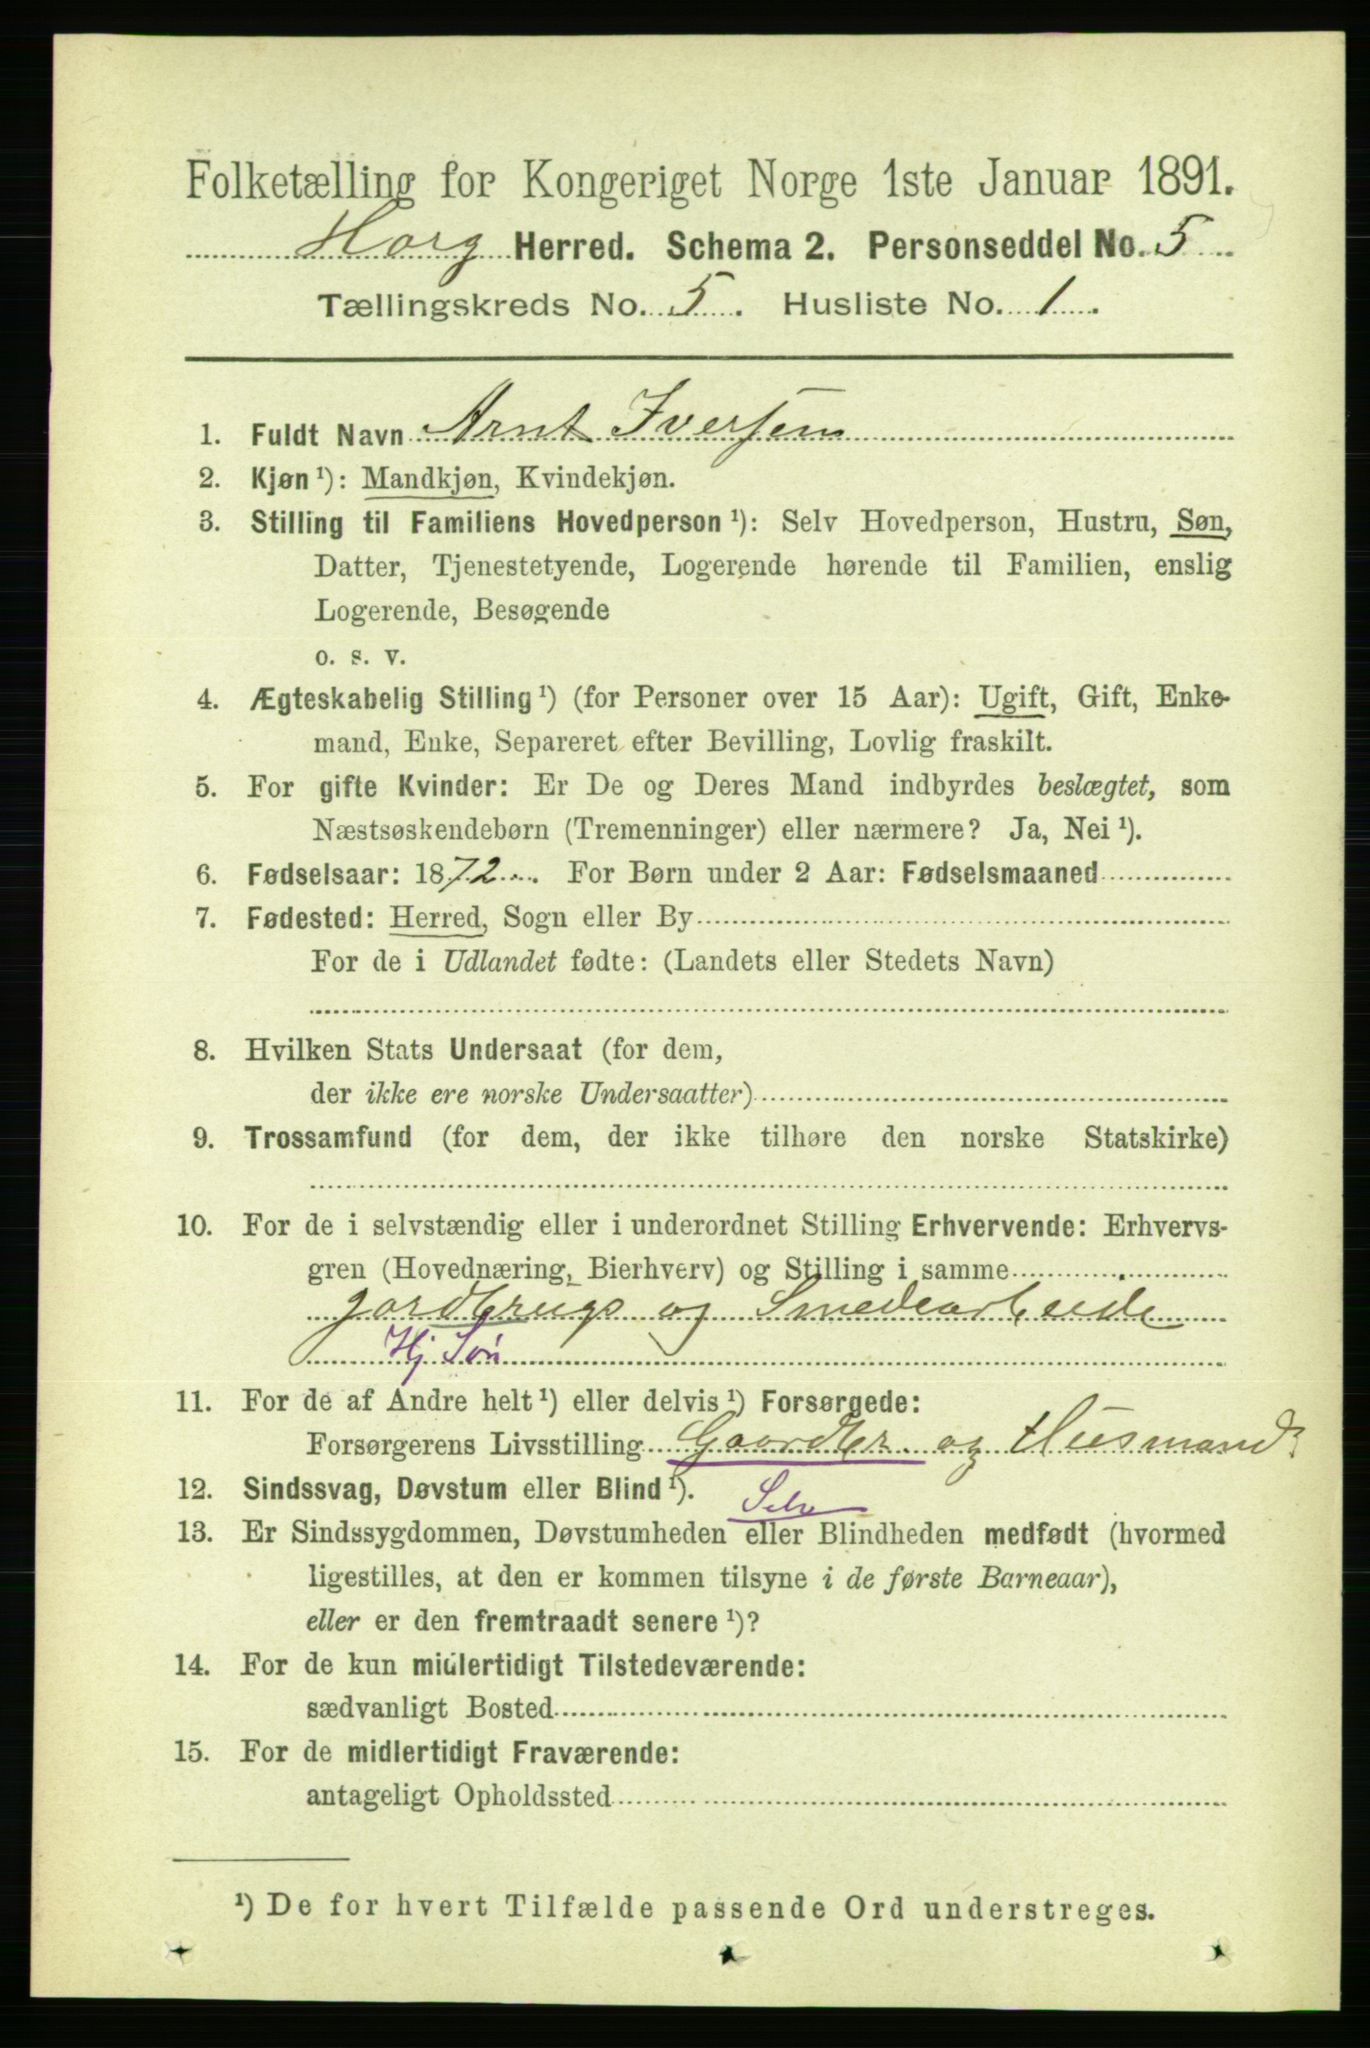 Folketælling for Kongeriget Norge 1ste Januar 1891.
Horg Herred. Schema 2. Personseddel No. 5
Tællingskreds No. 5. Husliste No. 1.
1. Fuldt Navn Arnt Iversen
2. Kjøn ¹): Mandkjøn, Kvindekjøn.
3. Stilling til Familiens Hovedperson ¹): Selv Hovedperson, Hustru, Søn,
Datter, Tjenestetyende, Logerende hørende til Familien, enslig
Logerende, Besøgende
o. s. v.
4. Ægteskabelig Stilling ¹) (for Personer over 15 Aar): Ugift, Gift, Enke-
mand, Enke, Separeret efter Bevilling, Lovlig fraskilt.
5. For gifte Kvinder: Er De og Deres Mand indbyrdes beslægtet, som
Næstsøskendebørn (Tremenninger) eller nærmere? Ja, Nei ¹).
6. Fødselsaar: 1872. For Børn under 2 Aar: Fødselsmaaned
7. Fødested: Herred, Sogn eller By
For de i Udlandet fødte: (Landets eller Stedets Navn)
8. Hvilken Stats Undersaat (for dem,
der ikke ere norske Undersaatter)
9. Trossamfund (for dem, der ikke tilhøre den norske Statskirke)
10. For de i selvstændig eller i underordnet Stilling Erhvervende: Erhvervs-
gren (Hovednæring, Bierhverv) og Stilling i samme
jordbrugs og Smedearbeide
Hj Søn
11. For de af Andre helt ¹) eller delvis ¹) Forsørgede:
Forsørgerens Livsstilling Gaardbr. og Husmand
12. Sindssvag, Døvstum eller Blind ¹).
Selv
13. Er Sindssygdommen, Døvstumheden eller Blindheden medfødt (hvormed
ligestilles, at den er kommen tilsyne i de første Barneaar),
eller er den fremtraadt senere ¹)?
14. For de kun midlertidigt Tilstedeværende:
sædvanligt Bosted
15. For de midlertidigt Fraværende:
antageligt Opholdssted
¹) De for hvert Tilfælde passende Ord understreges.